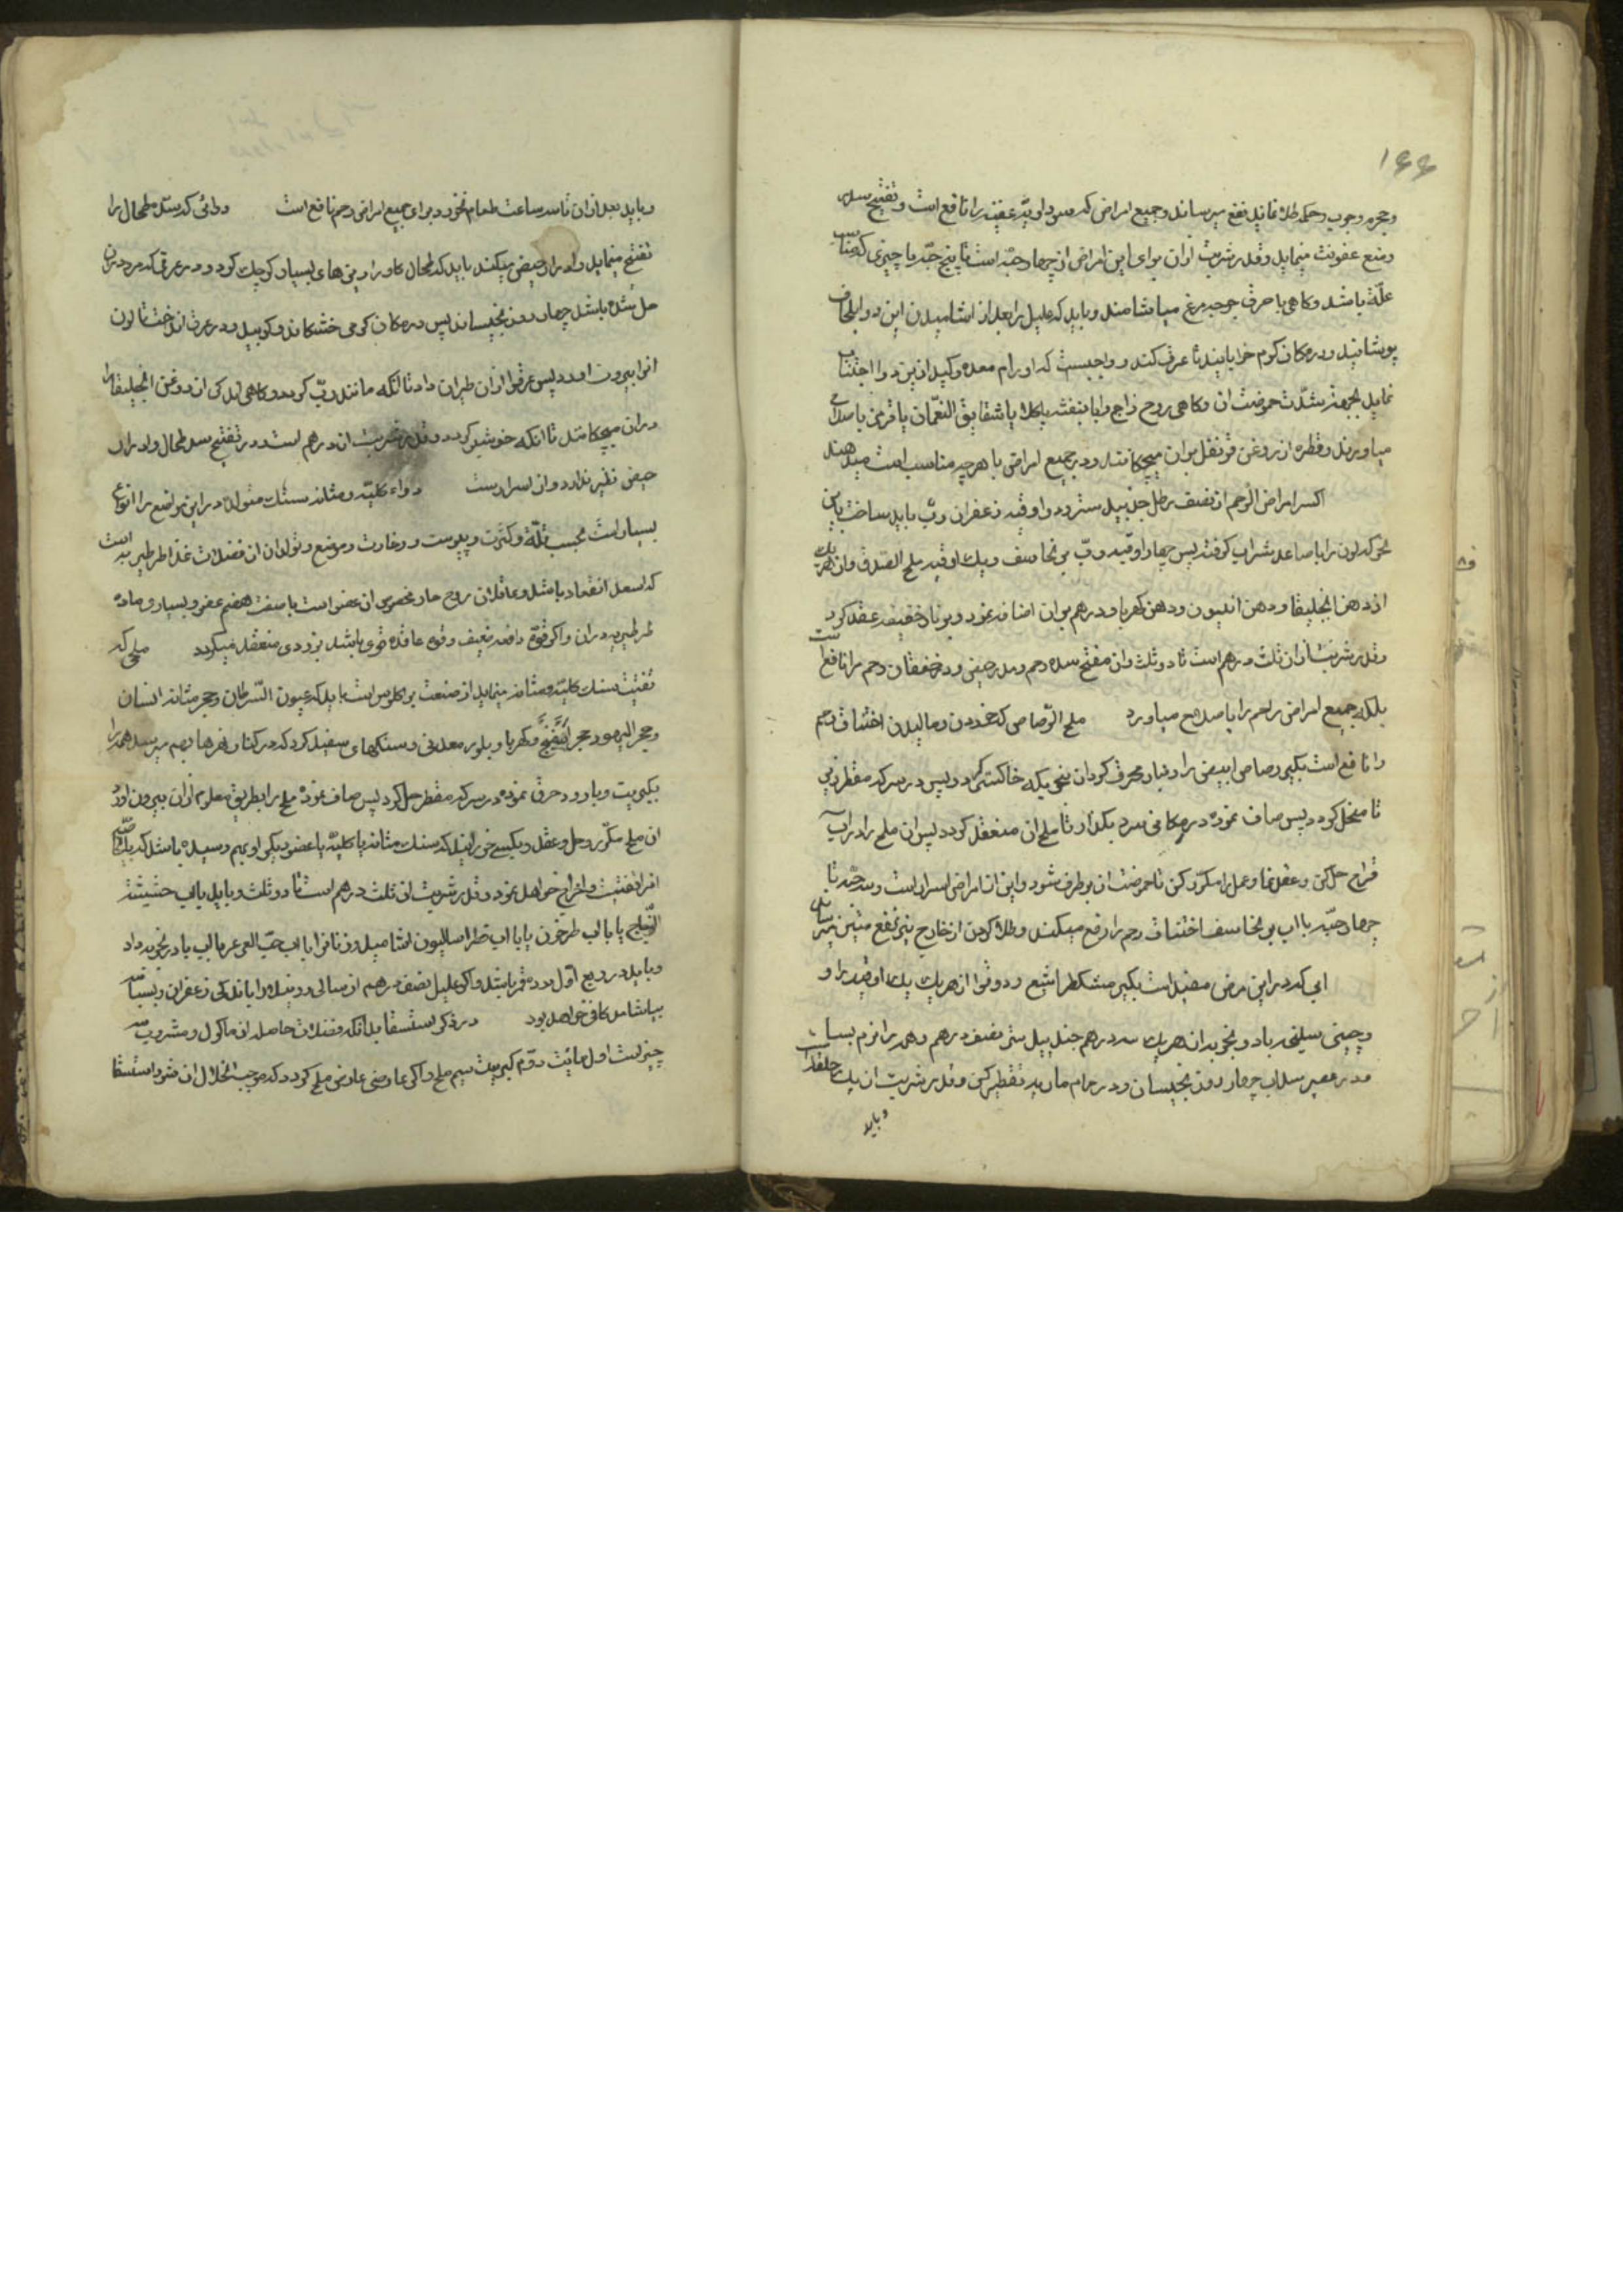 ۱۶۶
وجمره وجرب وحکه طلا نماید نفع میرساند وجمیع امراض که
ومنع عفونت مینماید وقدر شربت از ان برای این امراض از چهار حبه است تا پنج حبه با چیزی که مناسب
علّة باشد وکاهی با مرق جوجه مرغ میاشامند وباید که علیل را بعد از اشامیدن این دوا بلحاف
پوشانید ودر مکان کرم خوابانید تا عرق کند و واجبست که اورام معده وکبد ازین دوا اجتناب
نماید بجهة شدّت حموضت ان وکاهی روح زاج را با بنفشه یا کلاب یا شقایق النعمان یا
میاورند وقطره از روغن قرنفل بر ان میچکانند ودر جمیع امراض با هر چه مناسب است میدهند
اکسر امراض الرحم از نصف رطل جند بیدستر ودو اوقیه زعفران ربّ باید ساخت باین
نحو که اول را با صاعد شراب کوفته پس چهار اوقیه ربّ برنجاسف ویک اوقیه ملح الصدف وازهر یک
از دهن انجلیقا ودهن انیسون ودهن کهربا ودرهم بر ان اضافه نموده وبر نار خفیفه عقد کرد
وقدر شربت از ان ثلث درهم است تا دو ثلث وان مفتح سده رحم ومدر حیض ودر خفقان رحم را نافع است
بلکه جمیع امراض رحم را باصلاح میاورد ملح الرصاص که خوردن ومالیدن اختناق رحم
را نافع است بکیر رصاص ابیض را ودر نار محرق کردان بنحویکه خاکستر کردد وپس در سرکه مقطر ریز
تا منحل کردد پس صاف نموده در مکانی سرد بکذار تا ملح ان منعقد کردد پس ان ملح را در اب
قراح حل کن وعقد نما وعمل را مکرّر کن تا حموضت ان برطرف شود واین از امراض اسرار است وسه حبه تا
چهار حبه با اب برنجاسف اختناق رحم را رفع میکند وطلا کردن از خارج نیز نفع مبین میرساند
ابی که در این مرض مفید است بکیر مشکطرامشیع ودوقوا از هر یک یک اوقیه
ودارچینی سلیخه زیاد ونخود از هر یک سه درهم جند بیدستر نصف درهم وهمه را نرم بساب
ودر عصیر سداب چهار روز بخیسان ودر حمام ماریه تقطیر کن وقدر شربت ان یک ملعقه است
وباید
وباید بعد از ان تا سه ساعت طعام نخورد وبرای جمیع امراض رحم نافع است دوائی که سدّه طحال را
تفتیح مینماید وادرار حیض میکند باید که طحال کاو را ریزه‌های بسیار کوچک کرد ودر عرقی که مر در ان
حل شده باشد چهار روز بخیساند پس در مکان کرمی خشکاند وکوبید ودر عرق انداخت تا لون
انرا بیرون اورد پس عرق را از ان طیران داد تا انکه مانند ربّ کردد وکاهی اندکی از روغن انجلیقا را
در ان میچکانند تا انکه خوشبو کردد وقدر شربت ان درهم است ودر تفتیح سده طحال وادرار
حیض نظیر ندارد وان اسرارست دواء کلیّه ومثانه سنک متولد در این مواضع را انواع
بسیار است بحسب قلّة وکثرت ویبوست ورخاوت وموضع وتولد ان از فضلات غذا طرطیریه است
که مستعد انعقاد باشد وعاقد ان روح حار مخصوص ان عضو است با ضعف هضم عضو وبسیاری ماده
طرطیریه در ان واکر قوّة دافعه ضعیف وقوة عاقده قوی باشد بزودی منعقد میکردد ملحی که
تفتیت سنک کلیّه ومثانه مینماید از صنعت براکلوس است باید که عیون السرطان وحجر مثانه انسان
وحجر الیهود وحجر اسفنج وکهربا وبلور معدنی وسنکهای سفید کرد که در کنار نهرها بهم میرسد همه را
بکبریت وبارود حرق نموده در سرکه مقطر حل کرد پس صاف نموده ملح را بطریق معلوم از ان بیرون اورد
ان ملح مکرّر وحل وعقد وبکسی خورانید که سنک مثانه یا کلیّه یا عضو دیکر او بهم رسیده باشد که یک
انرا تفتیت واخراج خواهد نمود وقدر شربت ان ثلث درهم است تا دو ثلث وباید با اب حشیشة
الزجاج یا با اب طرخون یا با اب فطراسالیون اشامید وزنانرا با اب حب العرعر یا اب بادرنجویه داد
وباید در ربع اول دوره قمر باشد واکر علیل نصف درهم از سالی دریده را با اندکی زعفران وبسباسه
بیاشامد کافی خواهد بود در ذکر استسقا بدانکه فضلات حاصله از ماکول ومشروب سه
چیز است اول مائیت دوّم کبریت سیم ملح واکر عارضی عارض ملح کردد که موجب انحلال ان شود استسقا